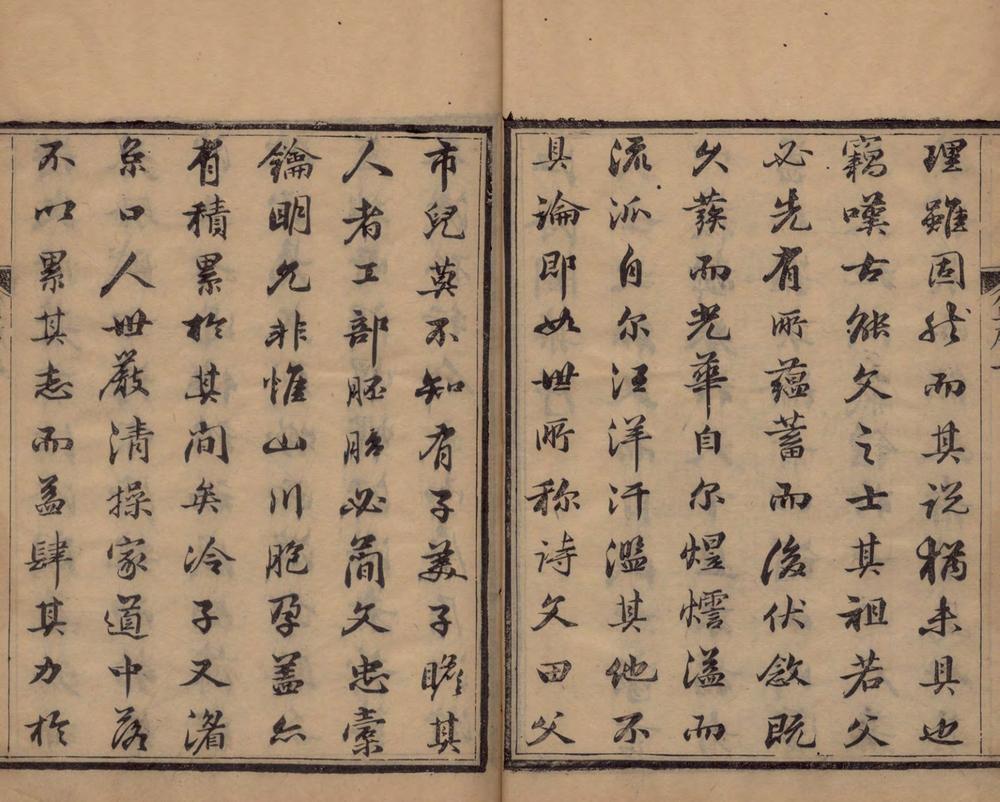 理雖固然而其説猶未具也
竊嘆古能文之士其祖若父
必先有所蘊蓄而後伏欲既
久蕟而光華自尔煜熠溢而
流派自尔汪洋汗濫其他不
具論即如世所称詩文田父
市兒莫不知有子美子瞻其
人者工部胚胎必簡文忠橐
鑰明允非惟山川胞孕盖亦
有積累於其间矣冷子又渚
糸口人世嚴清操家道中落
不以累其志而益肆其力於